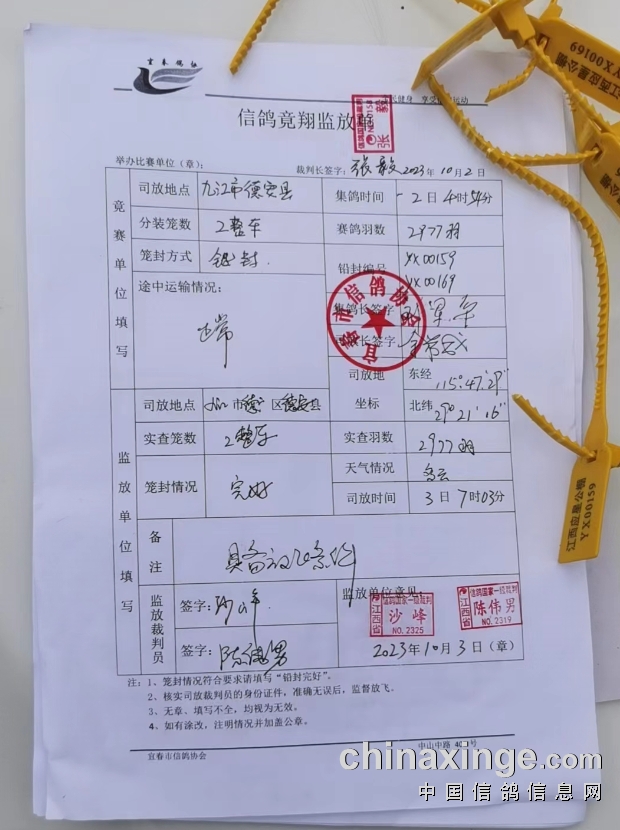 宜春鸽协
江西应星公棚
YX00169
信鸽竞翔监放单
NO.0158
张毅
举办比赛单位（章）：
裁判长签字：张毅 2023年10月2日
竞赛单位填写
司放地点 九江市德安县 集鸽时间 2日4时
分装笼数 2整车 赛鸽羽数 2977羽
笼封方式 铅封. 铅封编号 YX00159
YX00169
途中运输情况：
正常
集鸽长签字
宜春市信鸽协会
司放地 东经 115°47'29"
坐标 北纬 29°21'16"
监放单位填写
司放地点 九江市德 区德安县
实查笼数 2整车 实查羽数 2977羽
笼封情况 完好 天气情况 多云
司放时间 3日7时03分
备注 具备放飞条件
监放裁判员
签字：沙峰
签字：陈伟男
监放单位意见：
江西省 信鸽国家一级裁判 沙峰 NO.2325
江西省 信鸽国家一级裁判 陈伟男 NO.2319
2023年10月3日（章）
江西应星公棚
YX00159
注：1、笼封情况符合要求请填写“铅封完好”。
2、核实司放裁判员的身份证件，准确无误后，监督放飞。
3、无章、填写不全，均视为无效。
4、如有涂改，注明情况并加盖公章。
宜春市信鸽协会
中山中路
chinaxinge.com
中国信鸽信息网